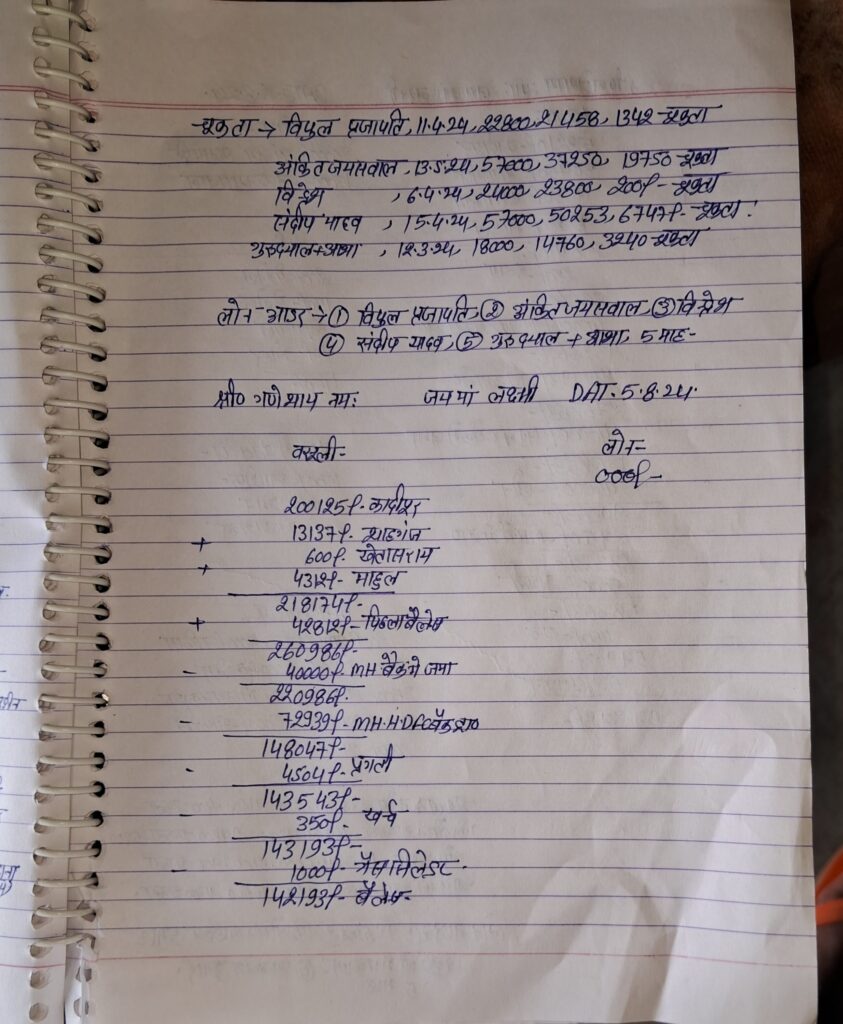 चुकता → विपुल प्रजापति, 11.4.24, 22800, 21458, 1342-चुकता
अंकित जयसवाल, 13.5.24, 57000, 37250, 19750-चुकता
, 6.4.24, 24000, 23800, 200/- चुकता
संदीप यादव, 15.4.24, 57000, 50253, 6747/- चुकता
गुरुदयाल+आभा, 12.3.24, 18000, 14760, 3240-चुकता
लोन → ① विपुल प्रजापति, ② अंकित जयसवाल, ③
④ संदीप यादव, ⑤ गुरुदयाल + आभा, 5 माह-
श्री० गणेशाय नमः जय मां लक्ष्मी DAT. 5.8.24.
वसूली- लोन-
000/-
200125/-
13137/- शाहगंज
+
600/- खेतासराय
+
4312/- माहुल
218174/-
+ 42812/- पिछला बैलेंस
260986/-
- 40000/- MH बैंक में जमा
220986/-
- 72939/- MH.HDFC बैंक
148047/-
- 4504/-
143543/-
- 350/- खर्च
143193/-
- 1000/-
142193/- बैलेंस-